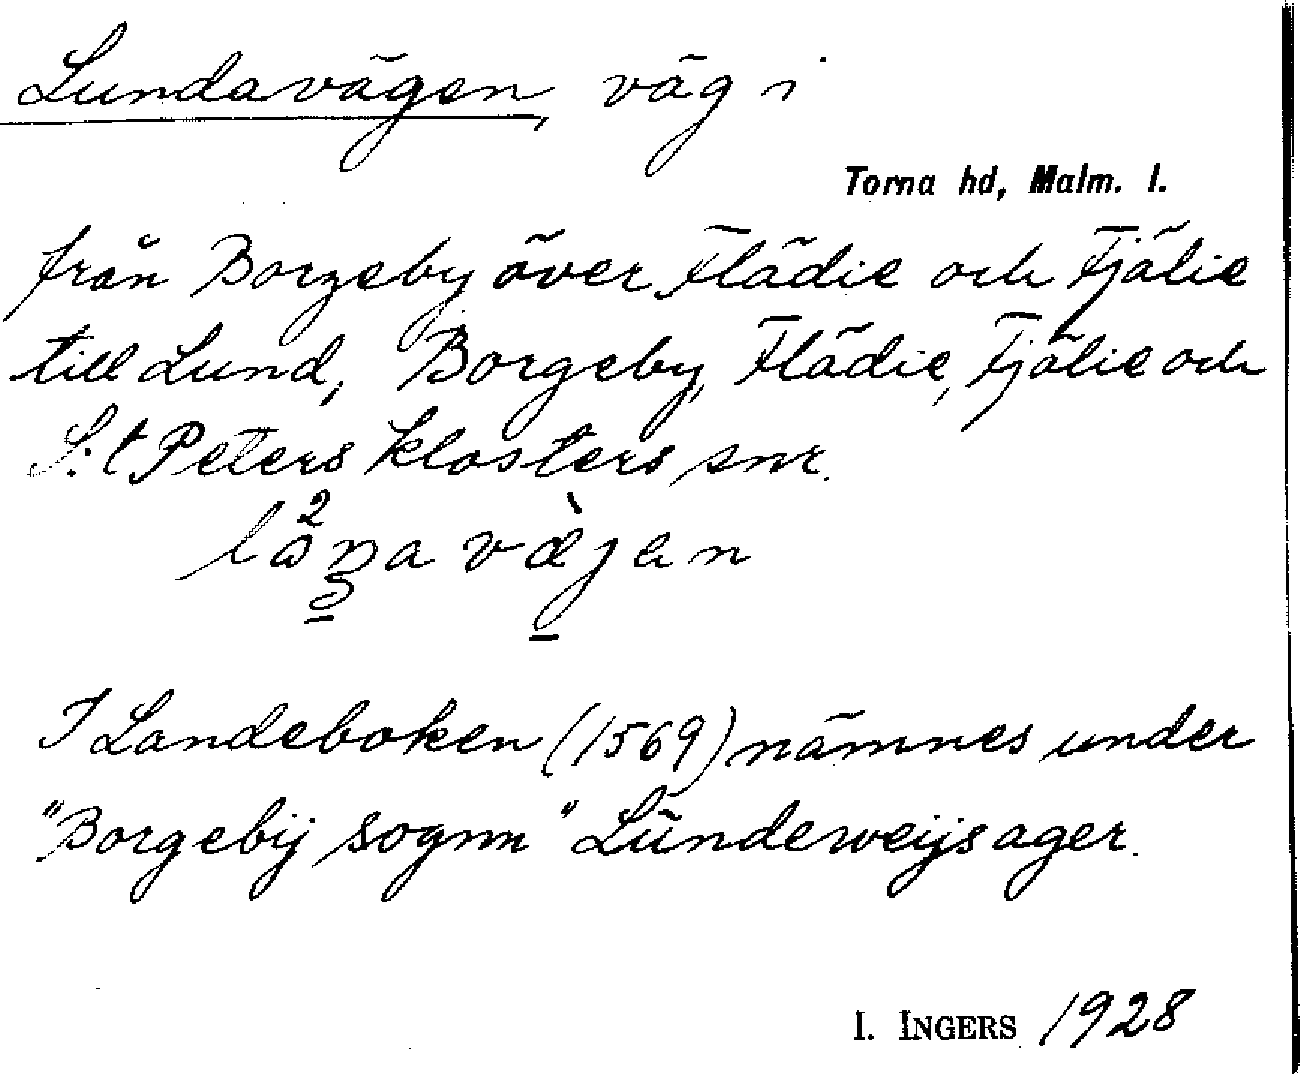 Lundavägen, väg i
Torna hd, Malm. l.
från Borgeby över Flädie och Fjälie
till Lund, Borgeby, Flädie, Fjälie och
S:t Peters klosters snr.
I Landeboken (1569) nämnes under
"Borgebij sognn" Lŭndeweijsager.
I. INGERS 1928